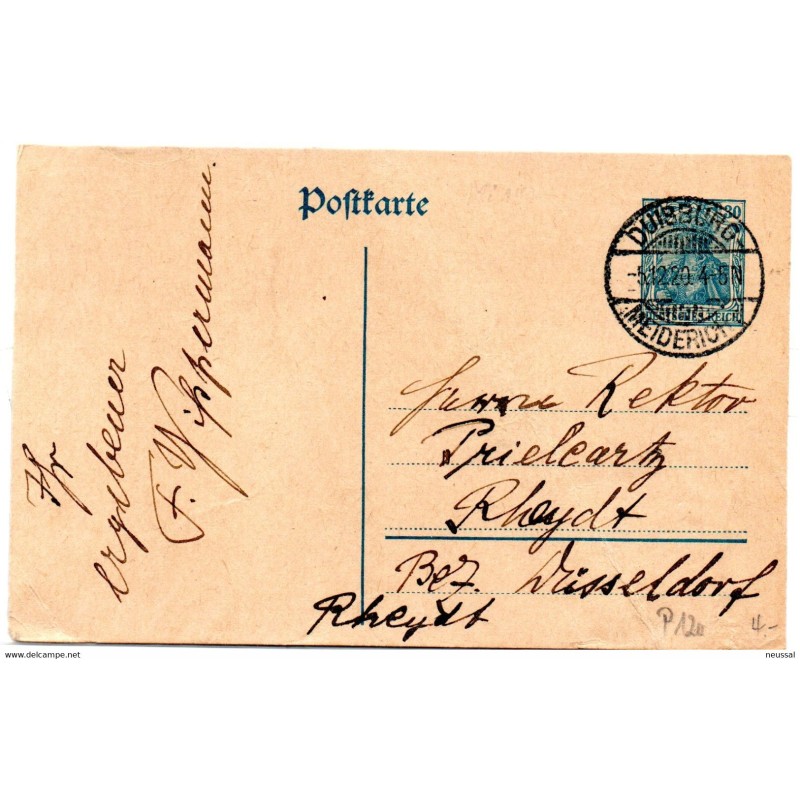 Postkarte
30
DEUTSCHES REICH
DUISBURG
-5.12.20. 4-5N
MEIDERICH
Herrn Rektor
Prielcartz
Rheydt
Bez. Düsseldorf
Rheydt
Ihr
ergebener
F. Wippermann.
P 120
4.-
www.delcampe.net
neussal